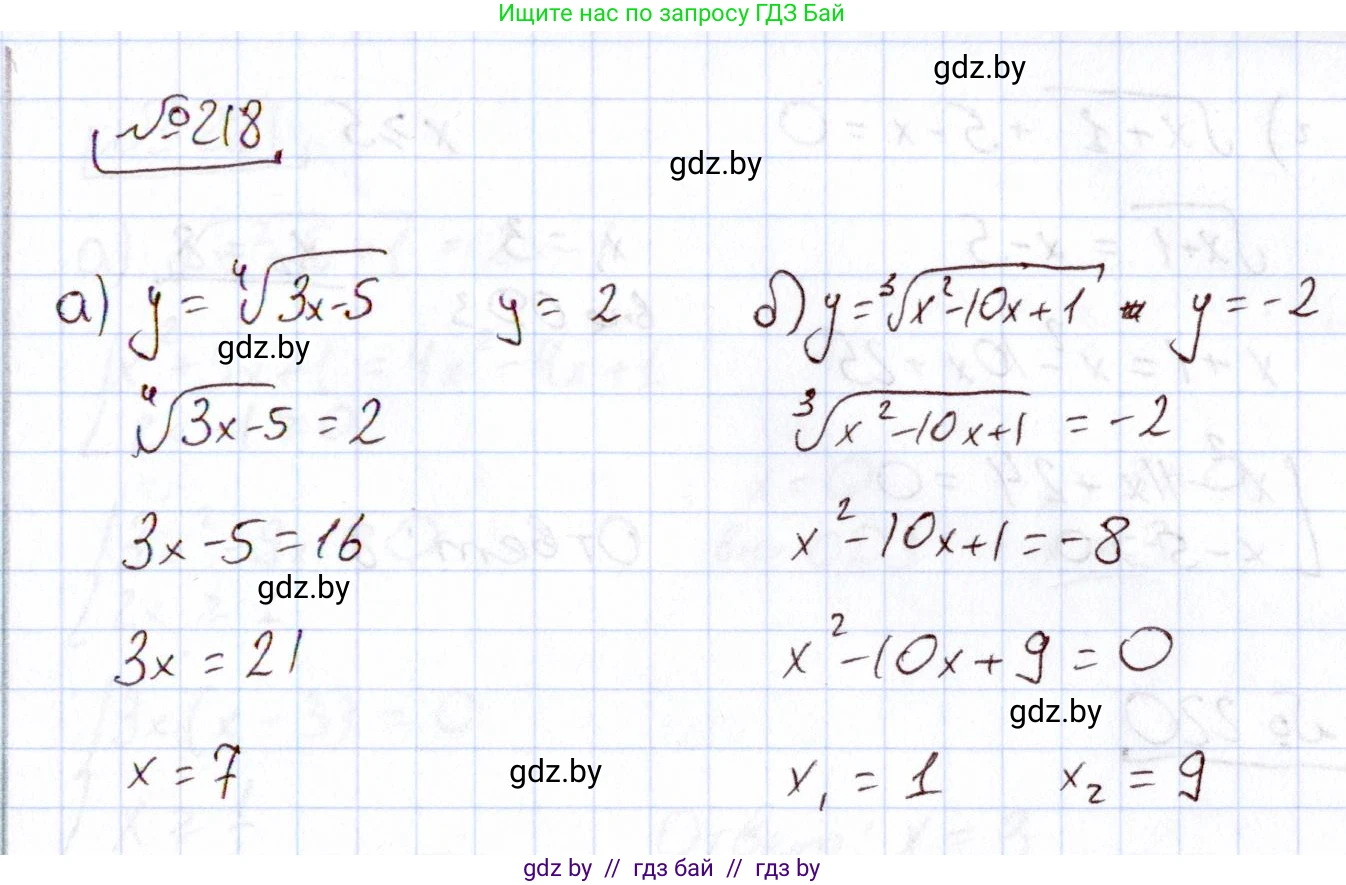 Ищите нас по запросу ГДЗ Бай
gdz.by
№218
gdz.by
а) y = ⁴√(3x-5)    y = 2
gdz.by
⁴√(3x-5) = 2
3x - 5 = 16
gdz.by
3x = 21
x = 7
gdz.by
б) y = ³√(x²-10x+1)    y = -2
³√(x²-10x+1) = -2
x² - 10x + 1 = -8
x² - 10x + 9 = 0
gdz.by
x₁ = 1    x₂ = 9
gdz by // гдз бай // гдз by